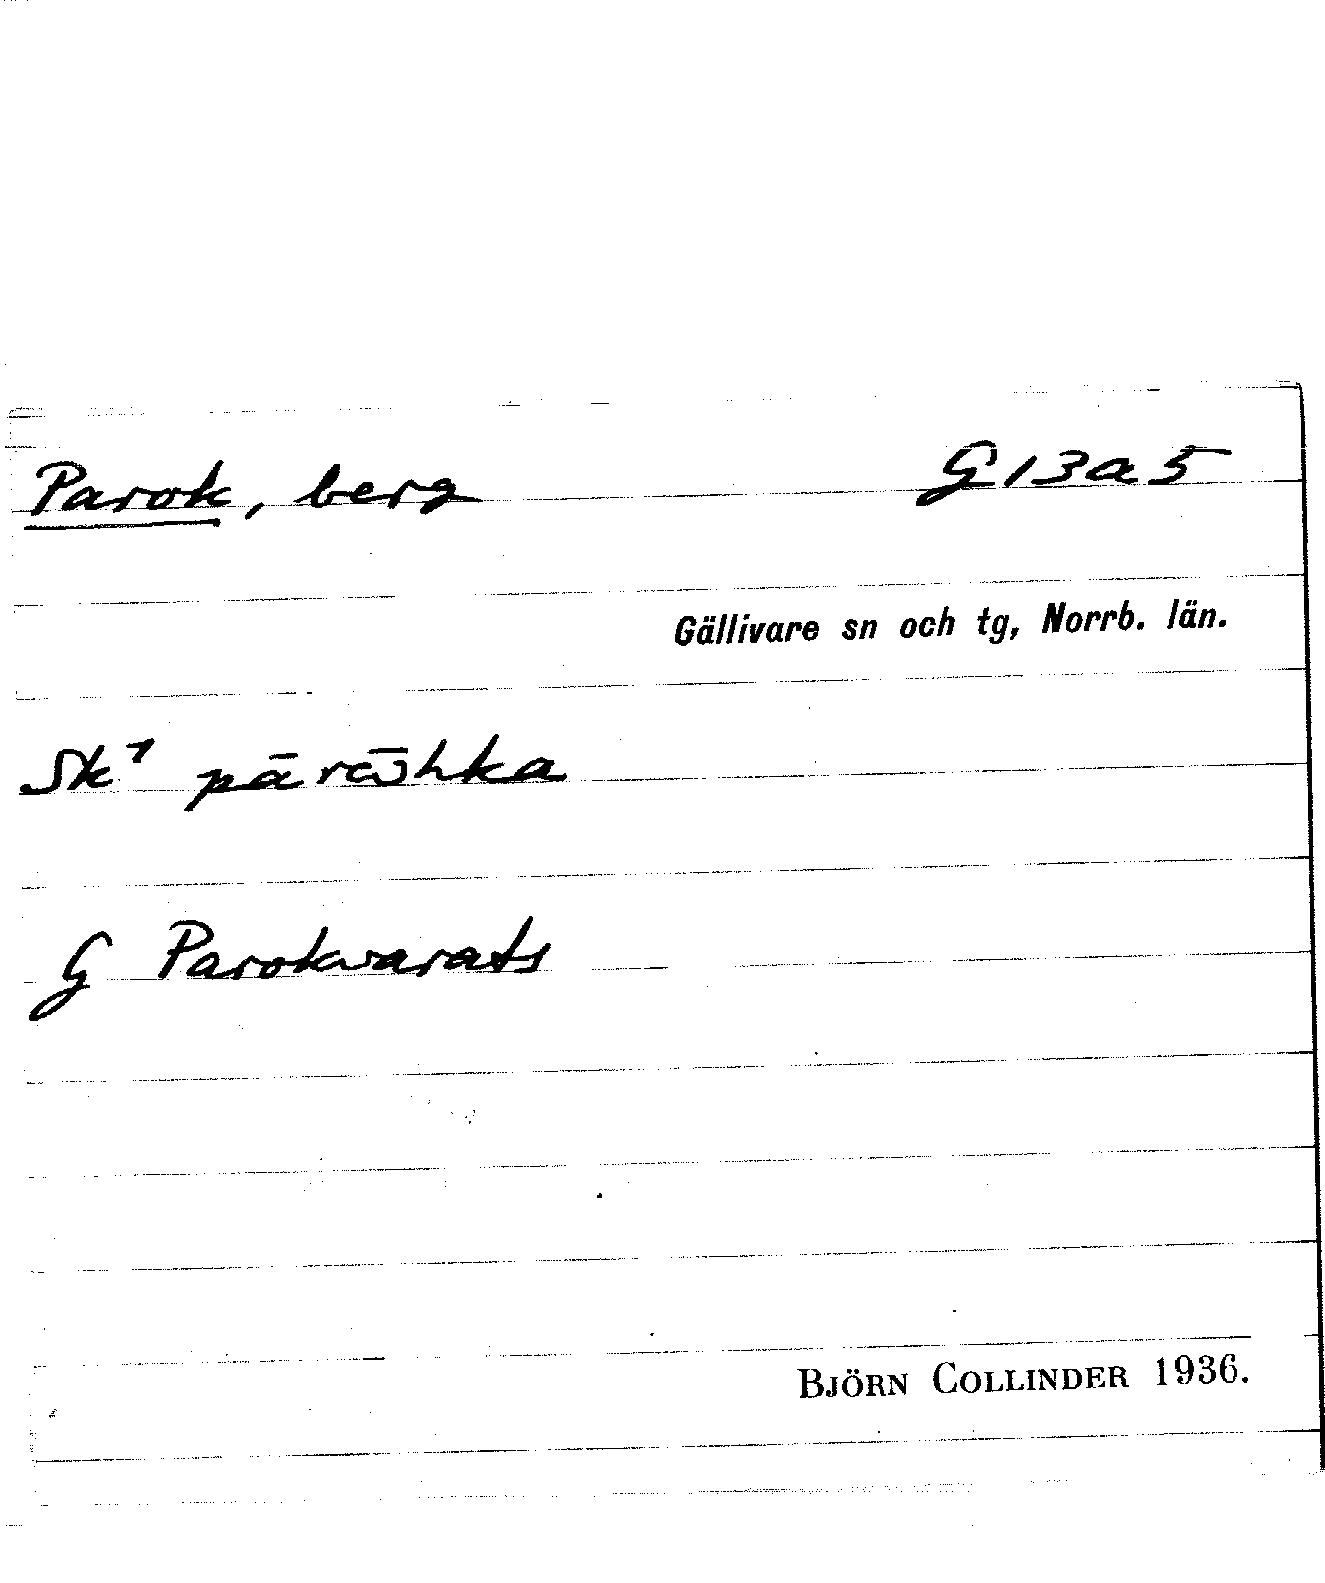 Parok, berg G13a5
Gällivare sn och tg, Norrb. län.
Sk⁷
G Parokvarats
BJÖRN COLLINDER 1936.